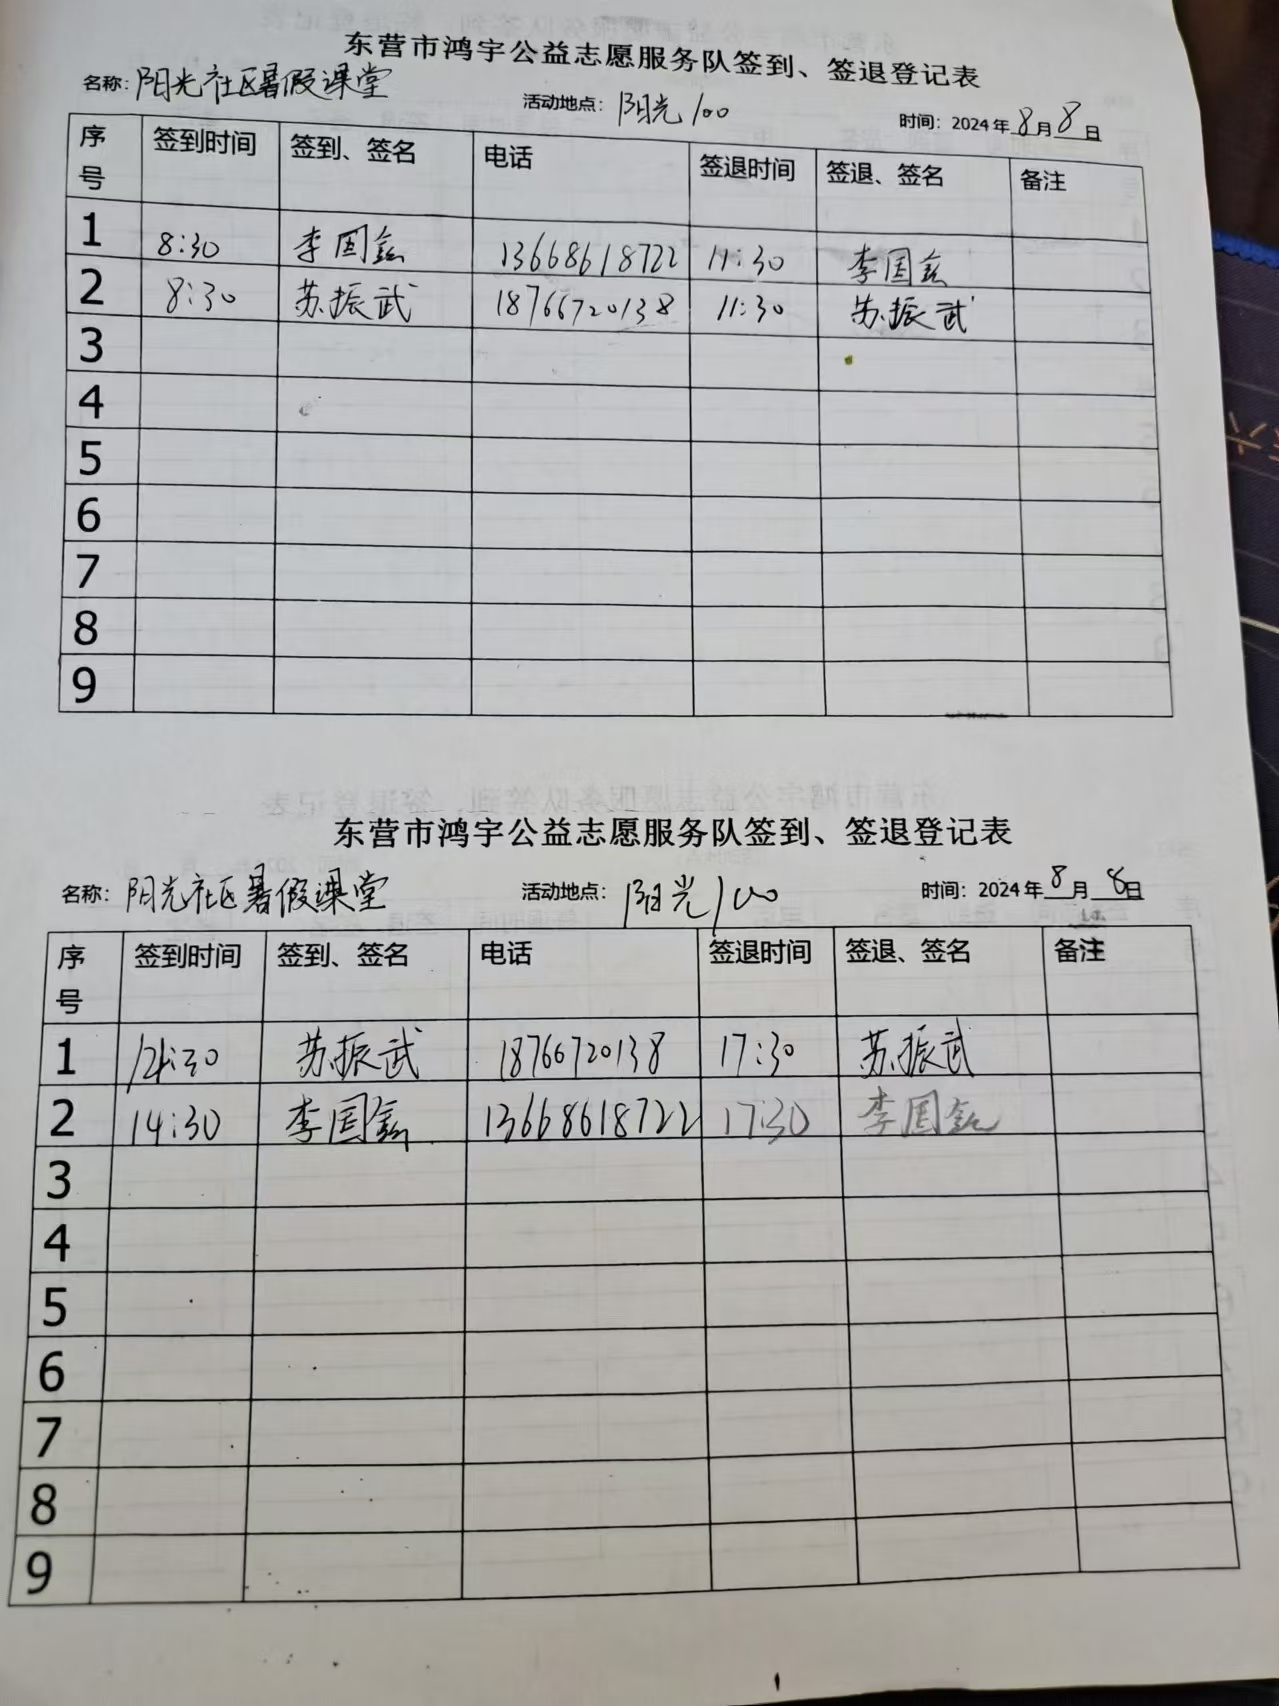 东营市鸿宇公益志愿服务队签到、签退登记表
名称：阳光社区暑假课堂 活动地点：阳光100 时间：2024年8月8日
序号 签到时间 签到、签名 电话 签退时间 签退、签名 备注
1 8:30 李国鑫 13668618722 11:30 李国鑫
2 8:30 苏振武 18766720138 11:30 苏振武
3
4
5
6
7
8
9
东营市鸿宇公益志愿服务队签到、签退登记表
名称：阳光社区暑假课堂 活动地点：阳光100 时间：2024年8月8日
序号 签到时间 签到、签名 电话 签退时间 签退、签名 备注
1 14:30 苏振武 18766720138 17:30 苏振武
2 14:30 李国鑫 13668618722 17:30 李国鑫
3
4
5
6
7
8
9